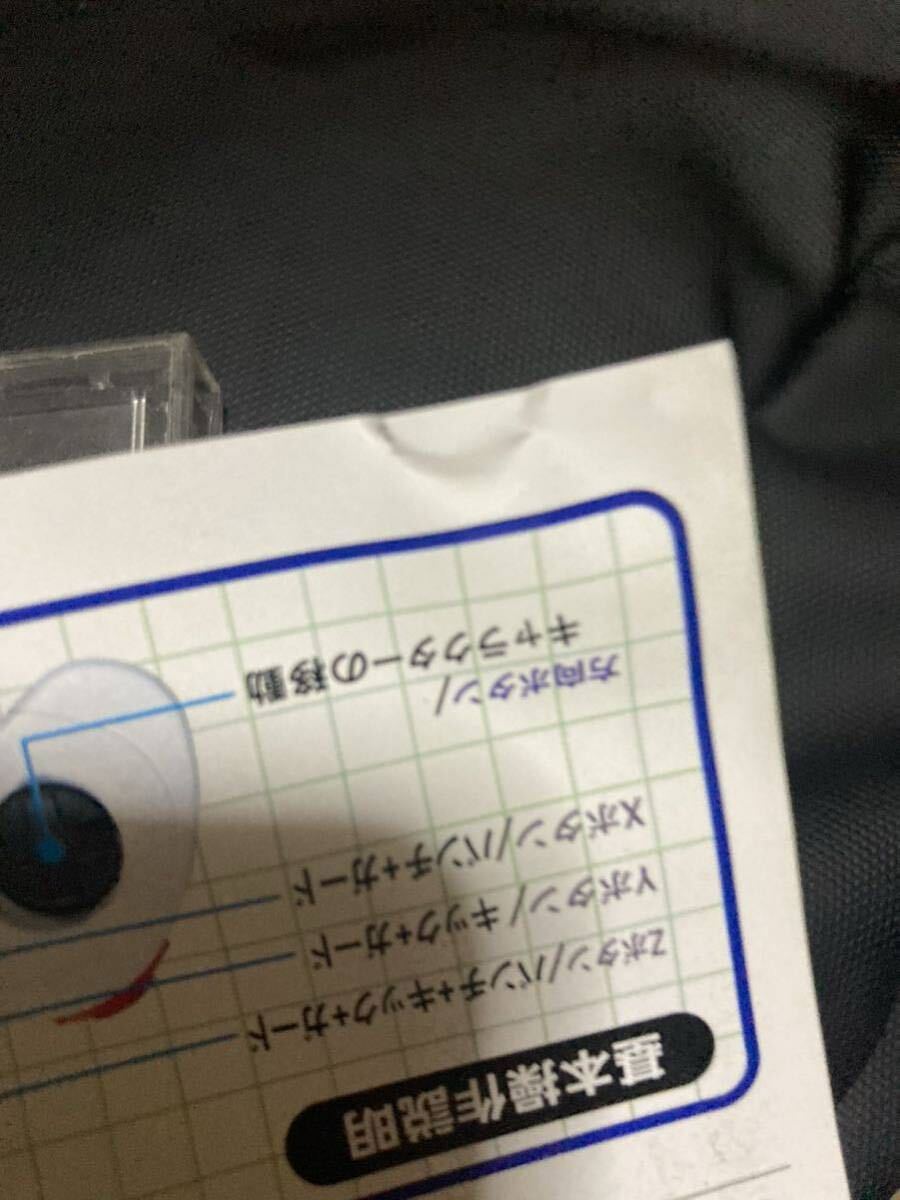 基本操作説明
Zボタン/パンチ+キック+ガード
Yボタン/キック+ガード
Xボタン/パンチ+ガード
方向ボタン/
キャラクターの移動